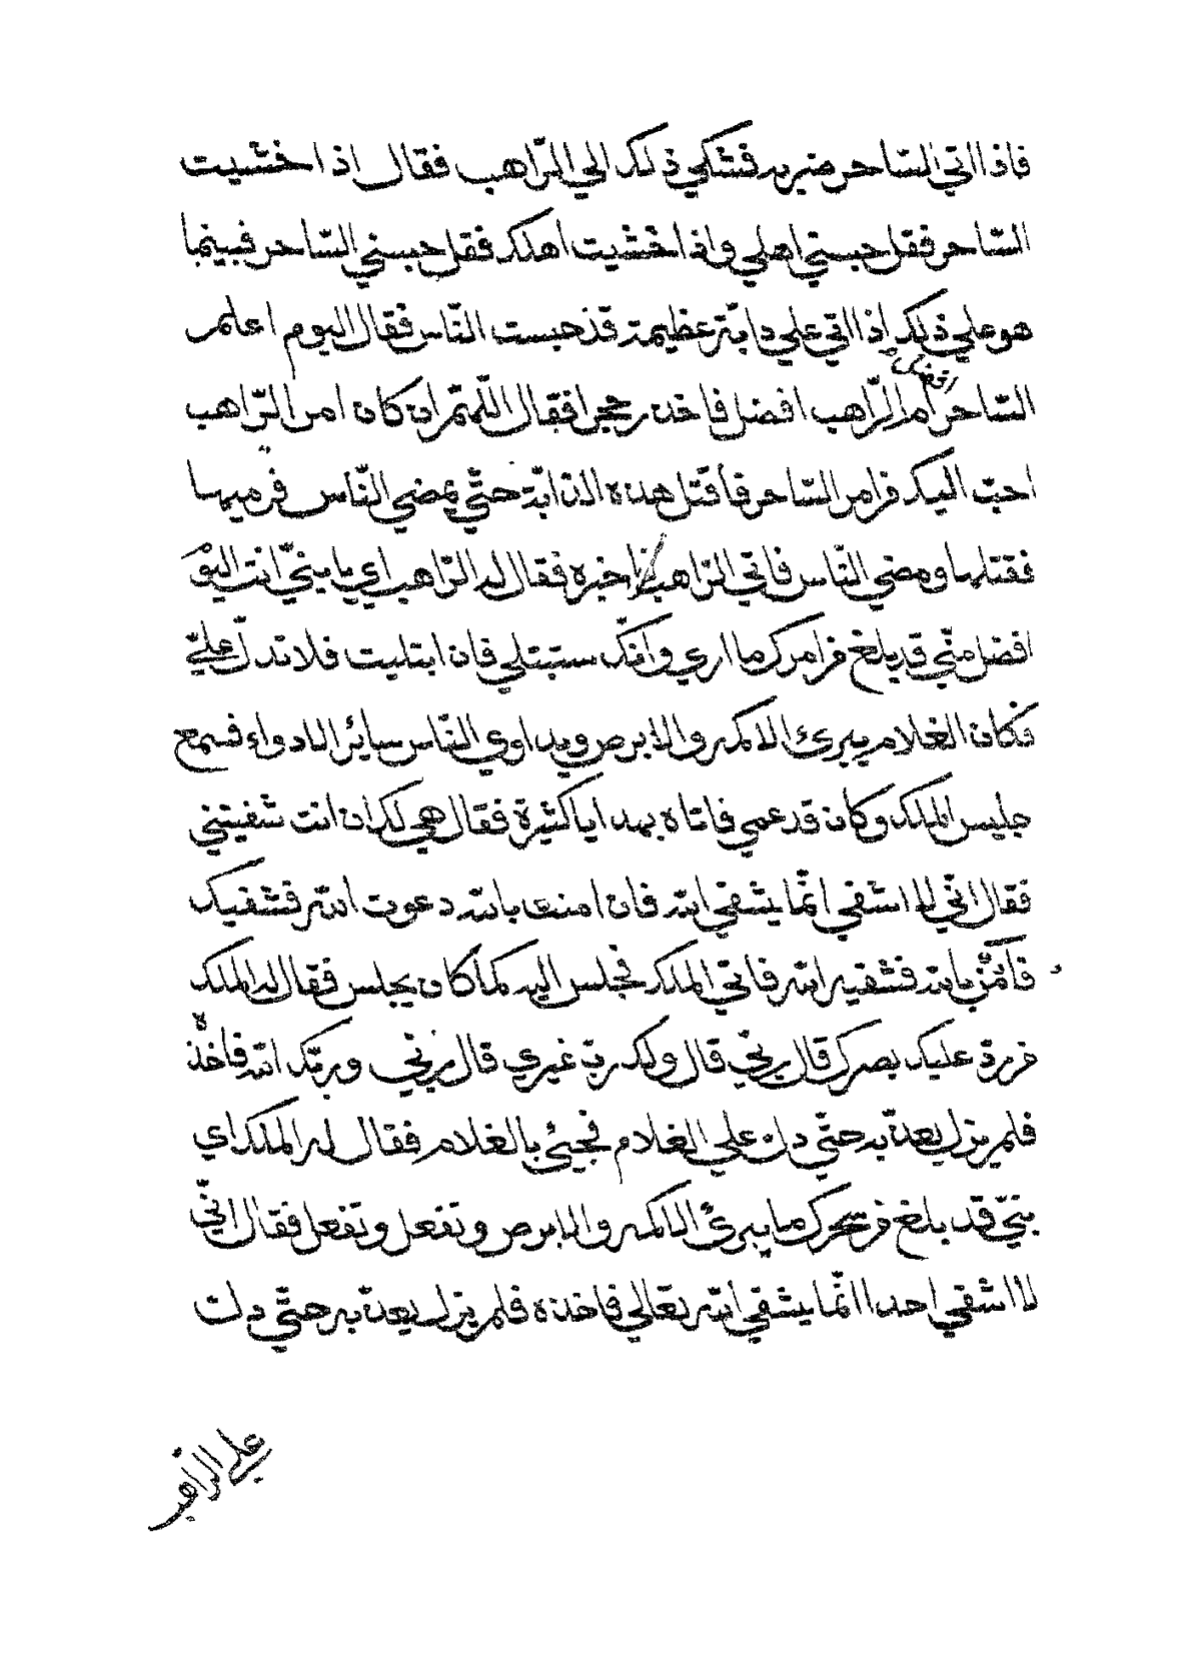 فاذا اتي السّاحر ضربه فشكي ذلك الي الرّاهب فقال اذا خشيت
السّاحر فقل حبسني اهلي واذا خشيت اهلك فقل حبسني السّاحر فبينما
هو علي ذلك إذا اتي علي دابّة عظيمة قد حبست النّاس فقال اليوم اعلم
السّاحر افضل أم الرّاهب افضل فاخذ حجرا فقال اللّهمّ ان كان امر الرّاهب
احبّ اليك من امر السّاحر فأقتل هذه الدّابّة حتّي يمضي النّاس فرميها
فقتلها ومضي النّاس فاتي الرّاهب فاخبره فقال له الرّاهب اي يا بنيّ انت اليوم
افضل منّي قد بلغ من امرك ما اري وانّك ستبتلي فان ابتليت فلا تدلّ عليّ
فكان الغلام يبرئ الاكمه والابرص ويداوي النّاس سائر الادواء فسمع
جليس الملك وكان قد عمي فاتاه بهدايا كثيرة فقال هي لك ان انت شفيتني
فقال انّي لا اشفي انّما يشفي الله فان امنت بالله دعوت الله فشفيك
فآمن بالله فشفيه الله فاتي الملك فجلس اليه كما كان يجلس فقال له الملك
من ردّ عليك بصرك قال ربّي قال ولك ربّ غيري قال ربّي وربّك الله فاخذه
فلم يزل يعذّبه حتّي دل علي الغلام فجيئ بالغلام فقال له الملك اي
بنيّ قد بلغ من سحرك ما يبرئ الاكمه والابرص وتفعل وتفعل فقال انّي
لا اشفي احدا انّما يشفي الله تعالي فاخذه فلم يزل يعذّبه حتّي دل
علي الراهب